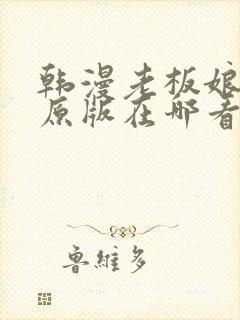 韩漫老板娘
原版在哪看
鲁維多